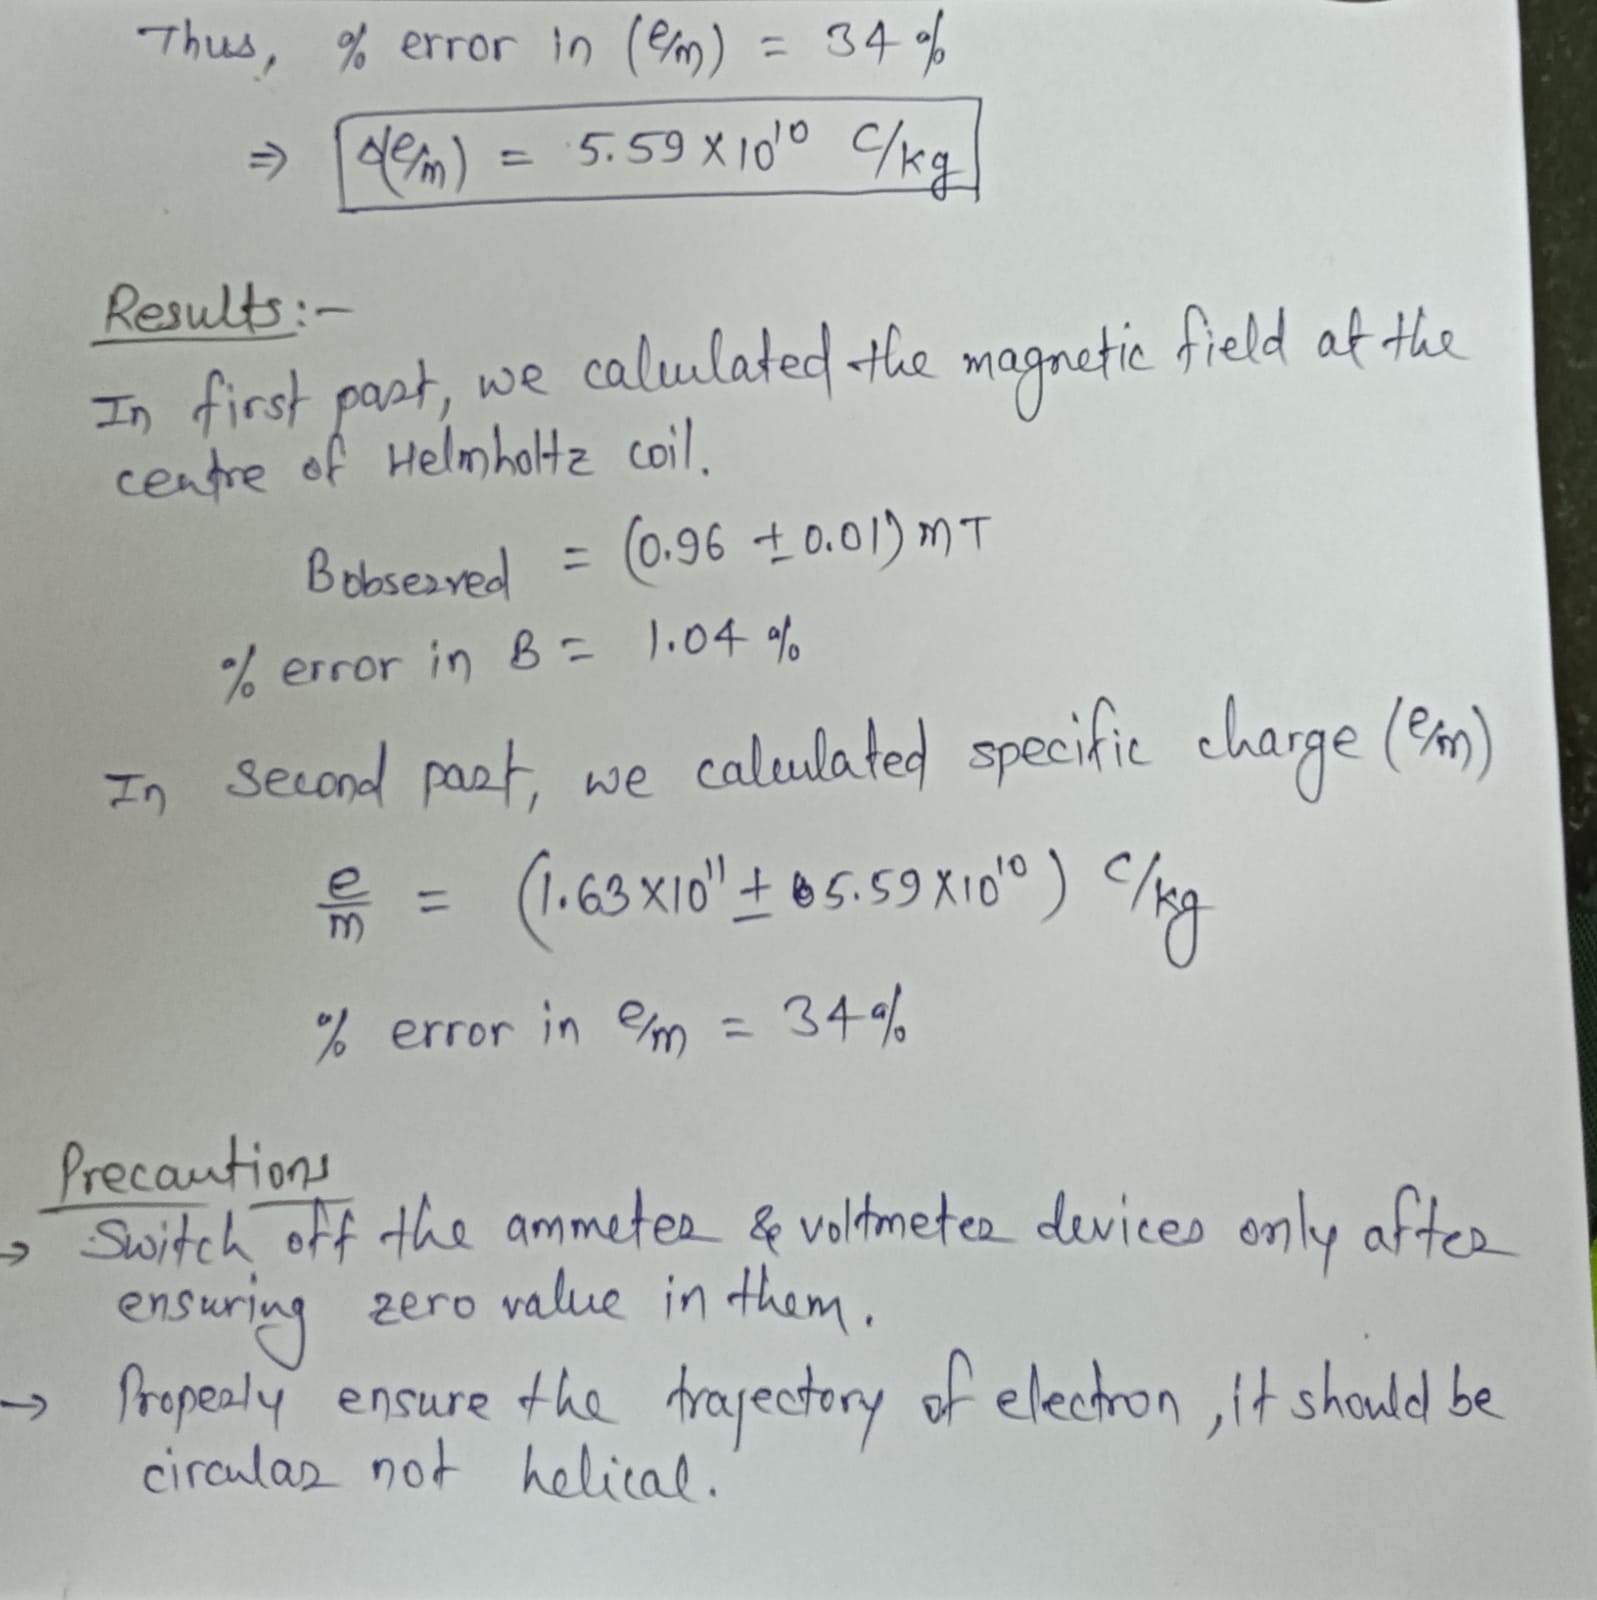 Thus, % error in (e/m) = 34 %
⇒ Δ(e/m) = 5.59 × 10¹⁰ C/kg
Results:-
In first part, we calculated the magnetic field at the
centre of Helmholtz coil.
Bobserved = (0.96 ± 0.01) mT
% error in B = 1.04 %
In second part, we calculated specific charge (e/m)
e/m = (1.63 × 10¹¹ ± 5.59 × 10¹⁰) C/kg
% error in e/m = 34%
Precautions
→ Switch off the ammeter & voltmeter devices only after
ensuring zero value in them.
→ Properly ensure the trajectory of electron, it should be
circular not helical.